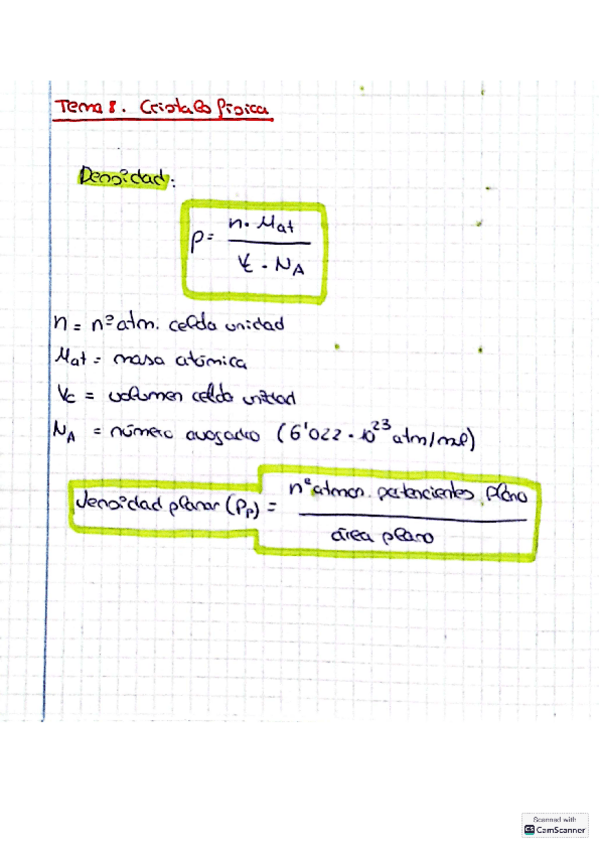 Tema 8. Cristalofísica
Densidad:
ρ = n · Mat / Vc · NA
n = nº atm. celda unidad
Mat = masa atómica
Vc = volumen celda unidad
NA = número avogadro (6'022 · 10^23 atm/mol)
Densidad planar (ρp) = nº atmos. pertencientes plano / área plano
Scanned with
CS CamScanner